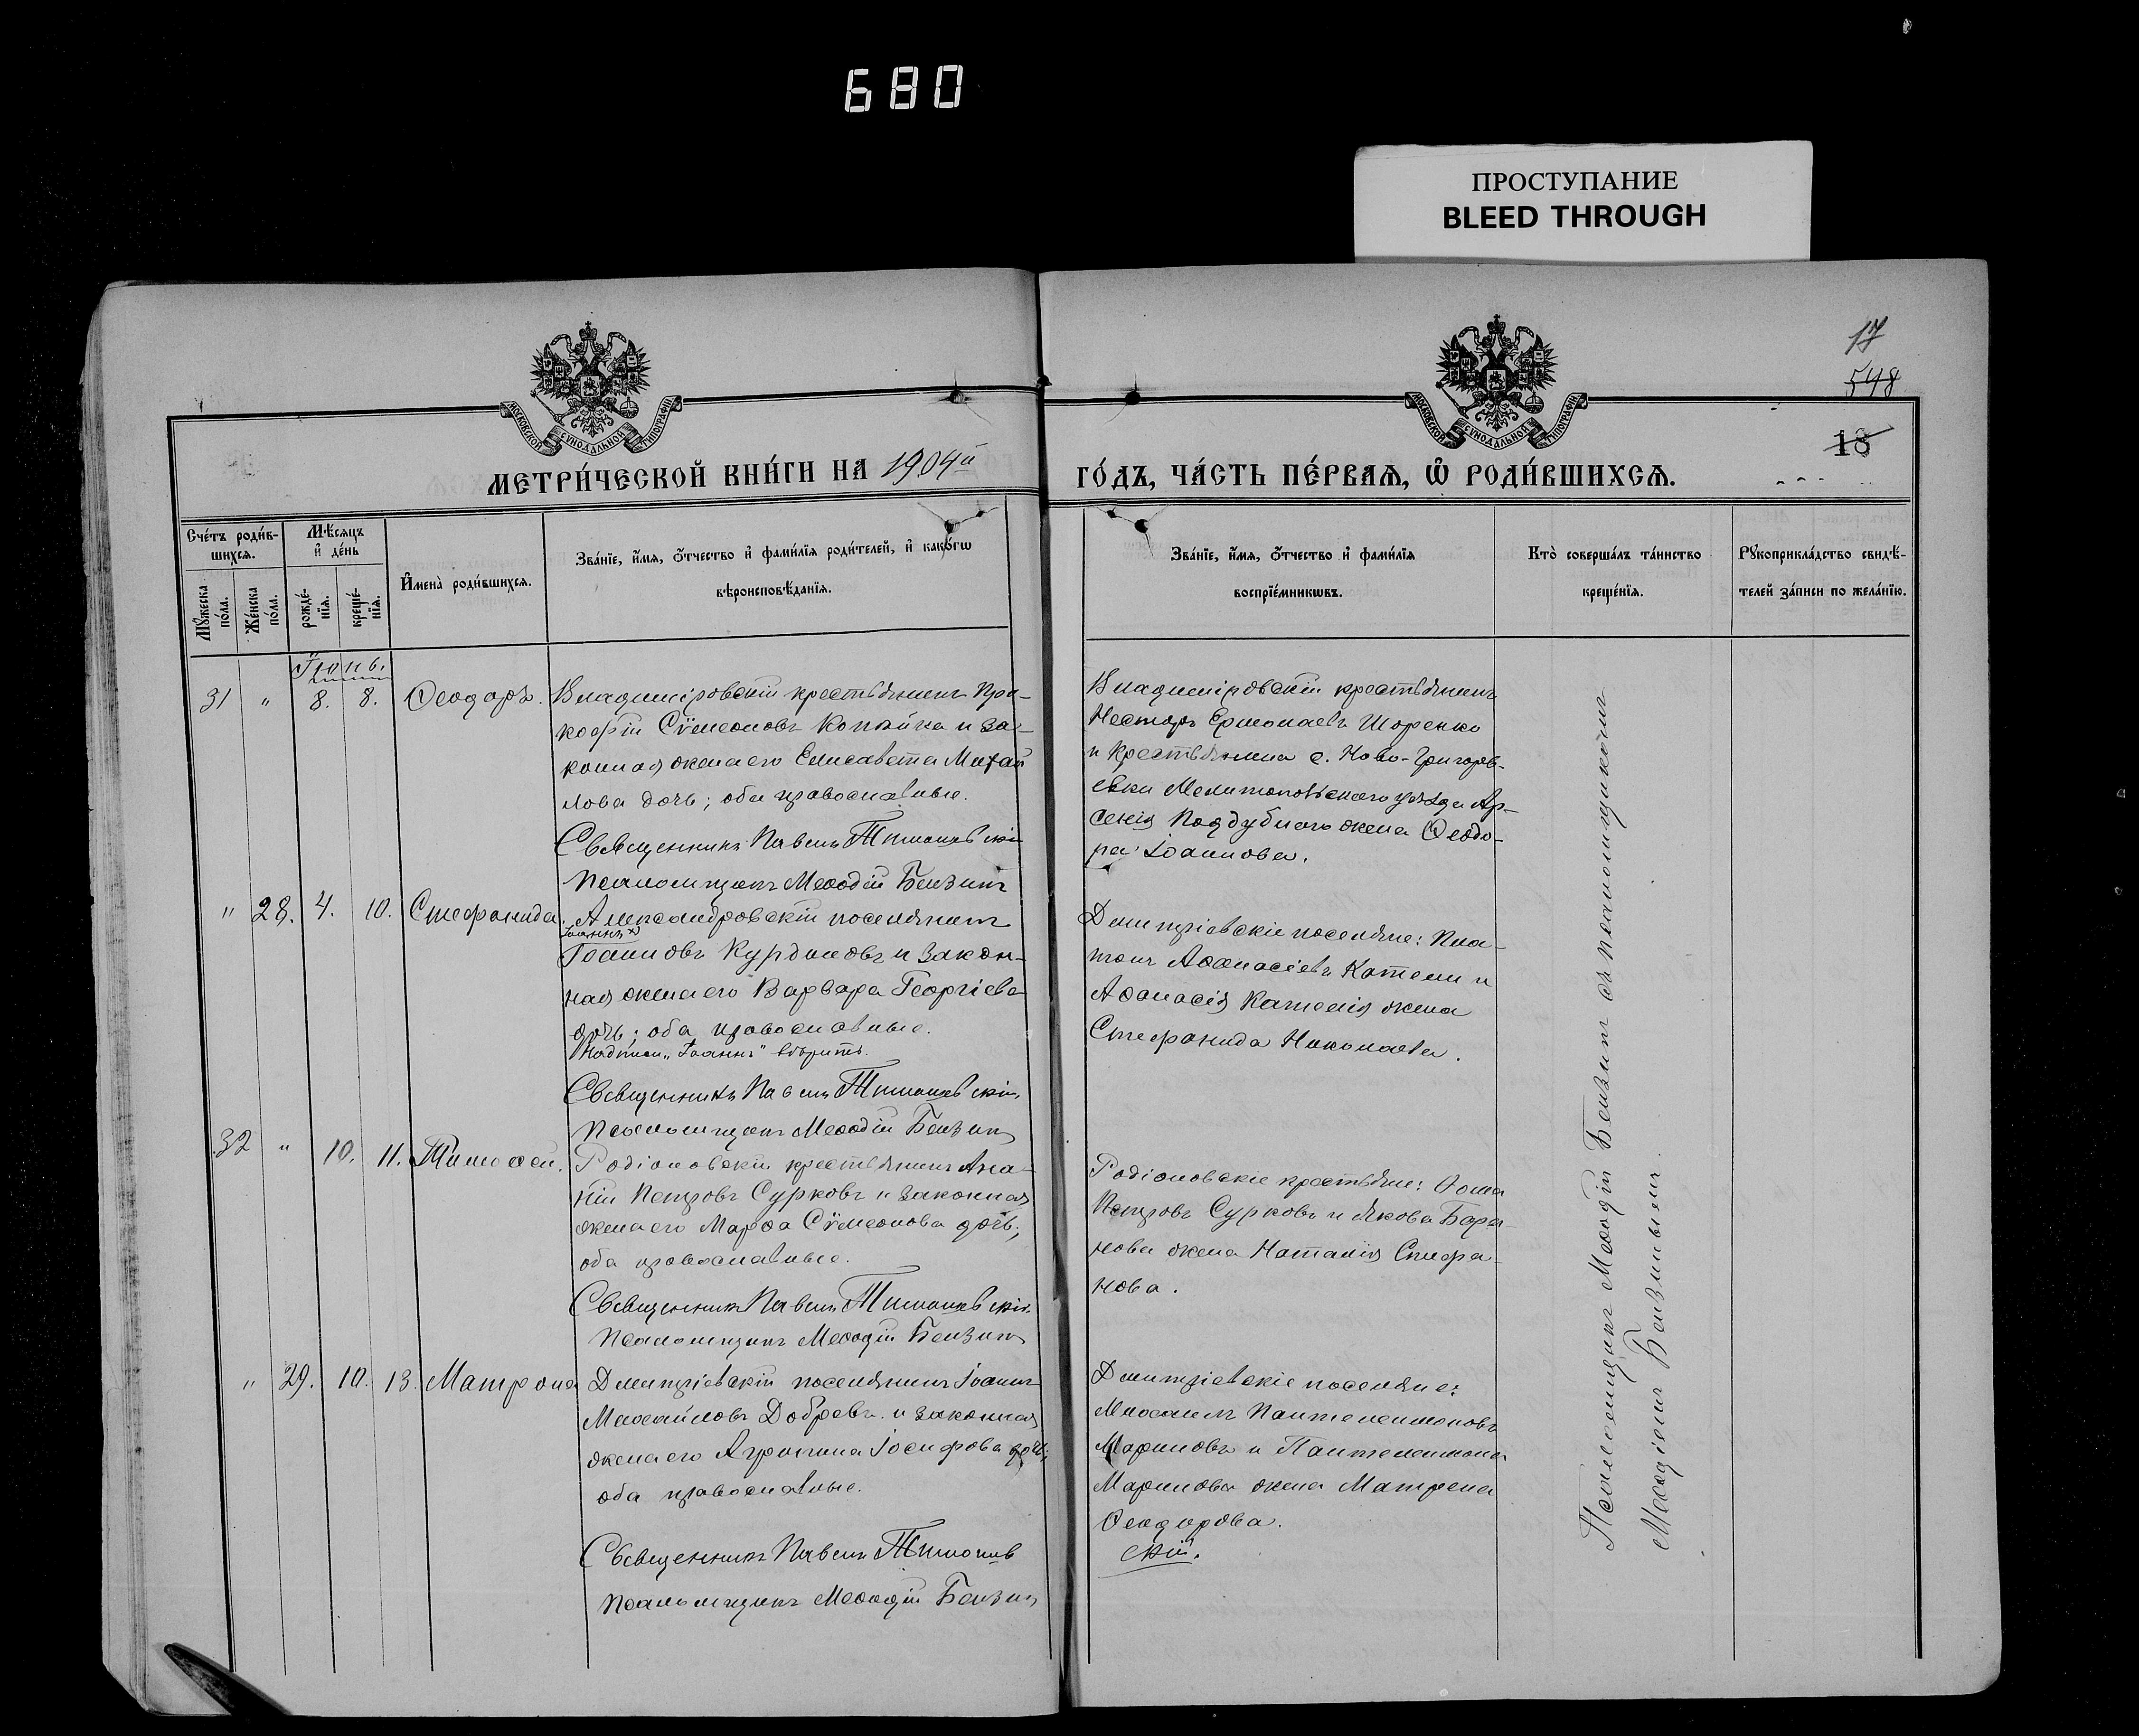 680
ПРОСТУПАНИЕ
BLEED THROUGH
17
548
18
МОСКОВСКОЙ СѴНОДАЛЬНОЙ ТИПОГРАФІИ
МОСКОВСКОЙ СѴНОДАЛЬНОЙ ТИПОГРАФІИ
МЕТРИ́ЧЕСКОЙ КНИ́ГИ НА 1904й
ГО́ДЪ, ЧА́СТЬ ПЕ́РВАѦ, Ѡ҆ РОДИ́ВШИХСѦ.
Сче́тъ роди́в-
шихсѧ.
Мꙋ́жеска по́ла.
Же́нска по́ла.
Мѣ́сѧцъ
и҆ де́нь
рожде́-
нїѧ.
креще́-
нїѧ.
И҆мена̀ роди́вшихсѧ.
Зва́нїе, и҆́мѧ, ѻ҆́тчество и҆ фами́лїѧ роди́телей, и҆ како́гѡ
вѣроисповѣ́данїѧ.
Зва́нїе, и҆́мѧ, ѻ҆́тчество и҆ фами́лїѧ
воспрїе́мникѡвъ.
Кто̀ соверша́лъ та́инство
креще́нїѧ.
Рꙋкоприкла́дство свидѣ́-
телей за́писи по жела́нїю.
Іюнь.
31 " 8. 8. Ѳеодоръ. Владиміровскій крестьянинъ Про-
кофій Сѵмеоновъ Копѣйка и за-
конная жена его Елисавета Михай
лова дочь; оба православные.
Священникъ Павелъ Тимошевскій
Псаломщикъ Меѳодій Бензинъ
Владиміровскій крестьянинъ
Несторъ Ермолаевъ Шоренко
и крестьянина с. Ново-Григорь-
евки Мелитопольскаго уѣзда Ар-
сенія Поддубнаго жена Ѳеодо-
ра Іоаннова.
" 28. 4. 10. Стефанида. Александровскій поселянинъ
Іоаннъ
Іоанновъ Курдиновъ и закон-
ная жена его Варвара Георгіева
дочь; оба православные.
Надписи „Іоаннъ" вѣрить.
Священникъ Павелъ Тимошевскій
Псаломщикъ Меѳодій Бензинъ
Димитріевскіе поселяне: Пла-
тонъ Аѳанасіевъ Катели и
Аѳанасія Кателія жена
Стефанида Николаева.
32 " 10. 11. Тимоѳей. Родіоновскій крестьянинъ Ана-
ній Петровъ Сурковъ и законная
жена его Марѳа Сѵмеонова дочь;
оба православные.
Священникъ Павелъ Тимошевскій.
Псаломщикъ Меѳодій Бензинъ
Родіоновскіе крестьяне: Ѳома
Петровъ Сурковъ и Якова Бара-
нова жена Наталія Стефа-
нова.
" 29. 10. 13. Матрона Димитріевскій поселянинъ Іоаннъ
Михайловъ Добревъ и законная
жена его Агрипина Іосифова дочь;
оба православные.
Священникъ Павелъ Тимошев
Псаломщикъ Меѳодій Бензинъ
Димитріевскіе поселяне:
Михаилъ Пантелеимоновъ
Мариновъ и Пантелеимона
Маринова жена Матрена
Ѳеодорова.
скій.
Псаломщикъ Меѳодій Бензинъ съ псаломщикомъ
Меѳодіемъ Бензинымъ.